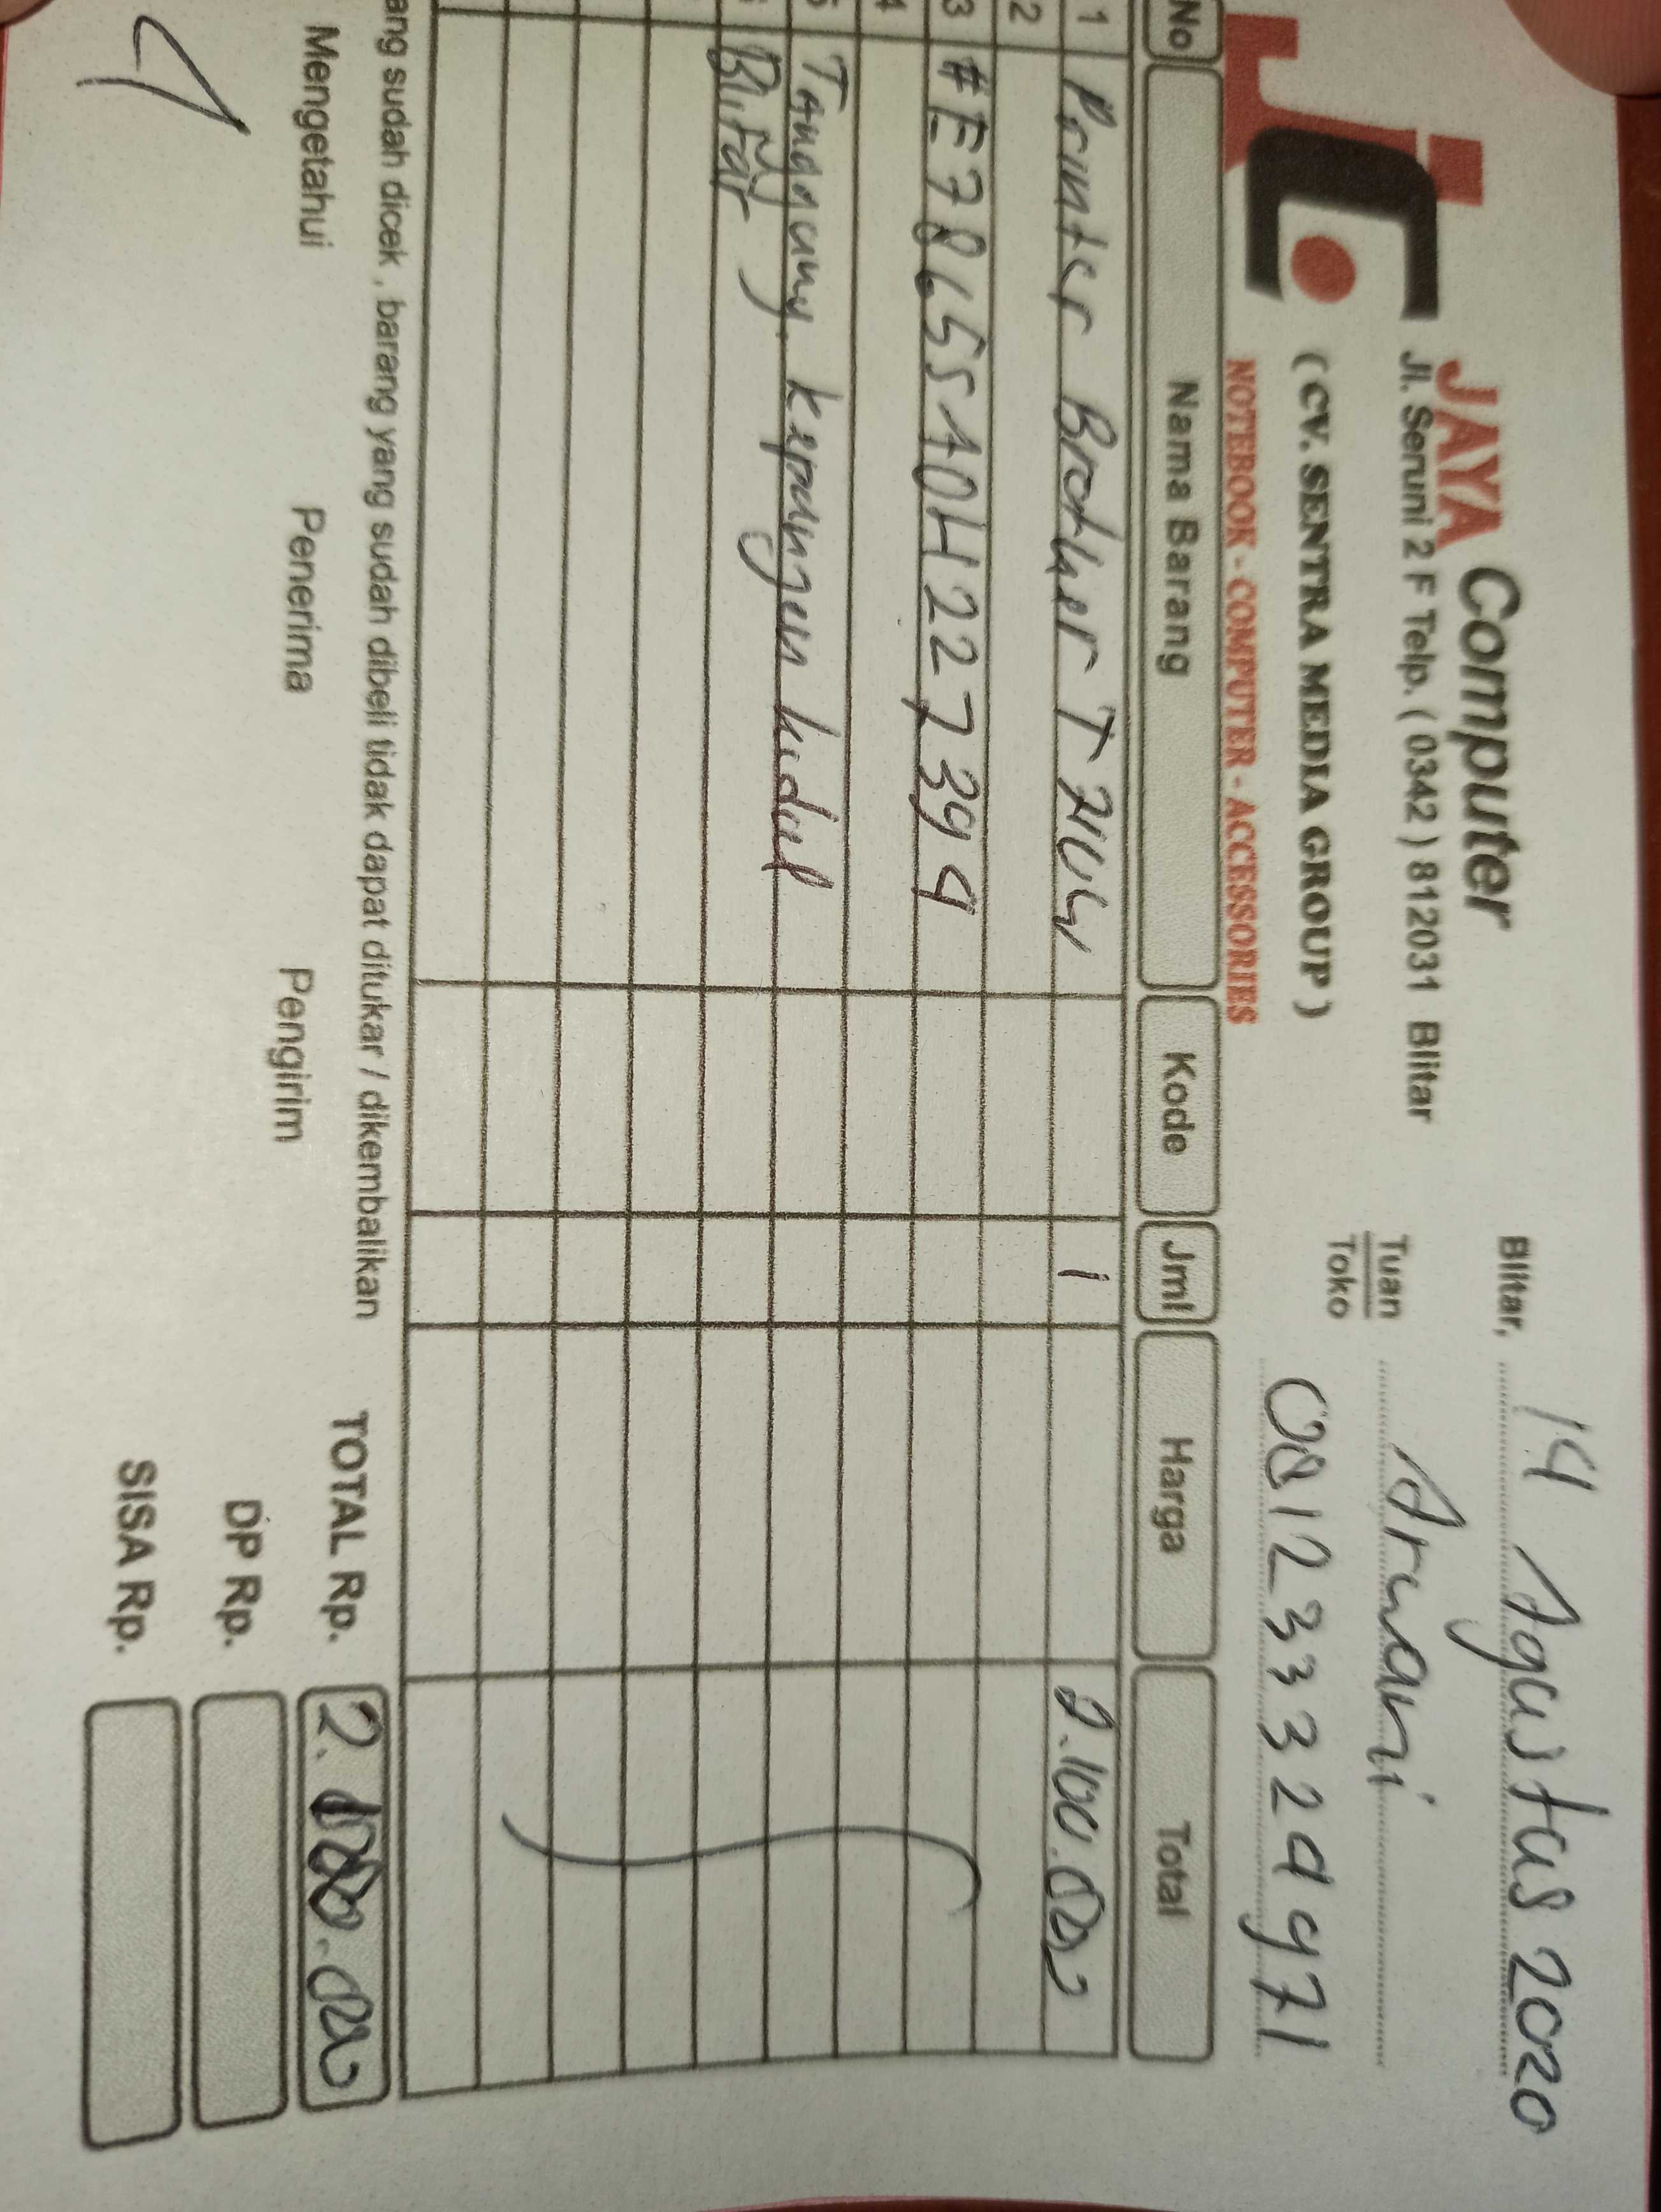 JAYA Computer
Jl. Seruni 2 F Telp. ( 0342 ) 812031 Blitar
( CV. SENTRA MEDIA GROUP )
NOTEBOOK - COMPUTER - ACCESSORIES
Blitar, 14 Agustus 2020
Tuan
Toko
Arwani
081233324971
No Nama Barang Kode Jml Harga Total
1 Printer Brother T 1 2.100.000
2
3 #E78655 10H227394
4
5 Tanggung, kepanjen kidul
Blitar
ang sudah dicek , barang yang sudah dibeli tidak dapat ditukar / dikembalikan
Mengetahui Penerima Pengirim
TOTAL Rp. 2.100.000
DP Rp.
SISA Rp.